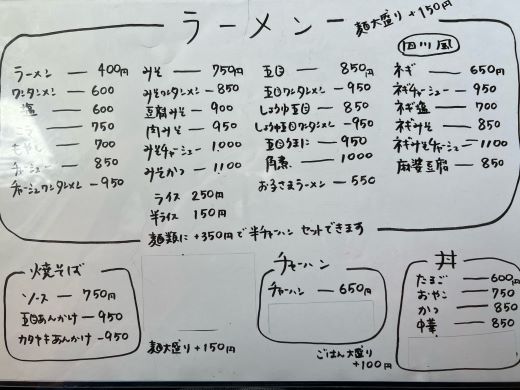 ラーメン
麺大盛り +150円
ラーメン — 400円
ワンタンメン — 600
塩 — 600
750
もやし — 700
チャーシュー — 850
チャーシューワンタンメン — 950
みそ — 750円
みそワンタンメン — 850
豆腐みそ — 900
肉みそ — 950
みそチャーシュー — 1.000
みそかつ — 1100
ライス 250円
半ライス 150円
五目 — 850円
五目ワンタンメン — 950
しょうゆ五目 — 850
しょうゆ五目ワンタンメン — 950
五目うまに — 950
角煮 — 1000
お子さまラーメン — 550
四川風
ネギ — 650円
ネギチャーシュー — 950
ネギ塩 — 700
ネギみそ — 850
ネギみそチャーシュー — 1100
麻婆豆腐 — 850
麺類に +350円で半チャーハン セットできます
焼そば
ソース — 750円
五目あんかけ — 950
カタヤキあんかけ — 950
麺大盛り +150円
チャーハン
チャーハン — 650円
ごはん大盛り
+100円
丼
たまご — 600円
おやこ — 750
かつ — 850
中華 — 850